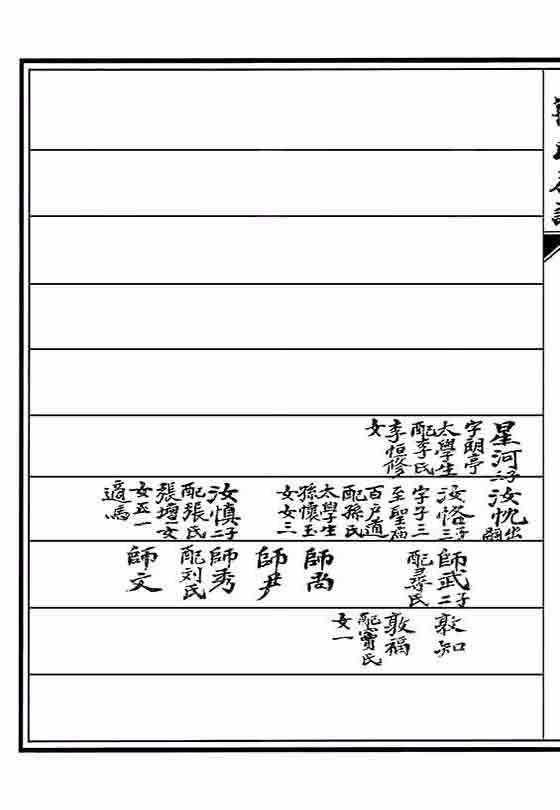 星河三子
字朗亭
太學生
配李氏
李恒修
女
汝忱出嗣
汝恪三子
字子三
至聖廟
百户道
配孫氏
太學生
孫懷玉
女女三
汝慎二子
配張氏
張壇女
女五一
適馬
師武二子
配尋氏
師尚
師尹
師秀
配刘氏
師文
敦知
敦福
配竇氏
女一